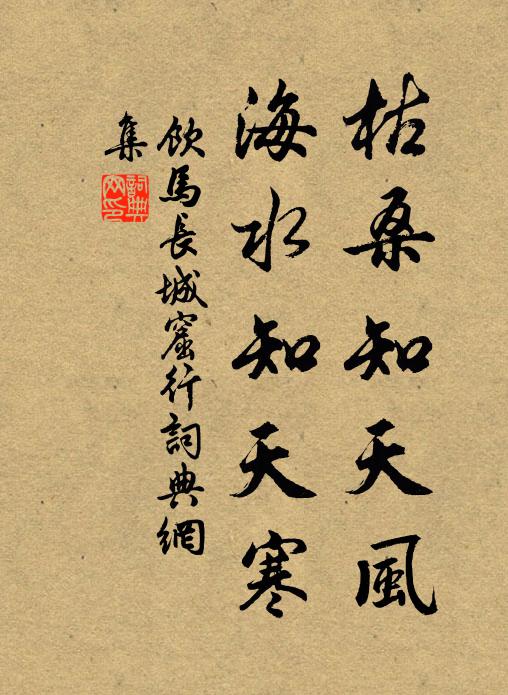 枯桑知天風
海水知天寒
飲馬長城窟行詞典網
集
詞典
網印